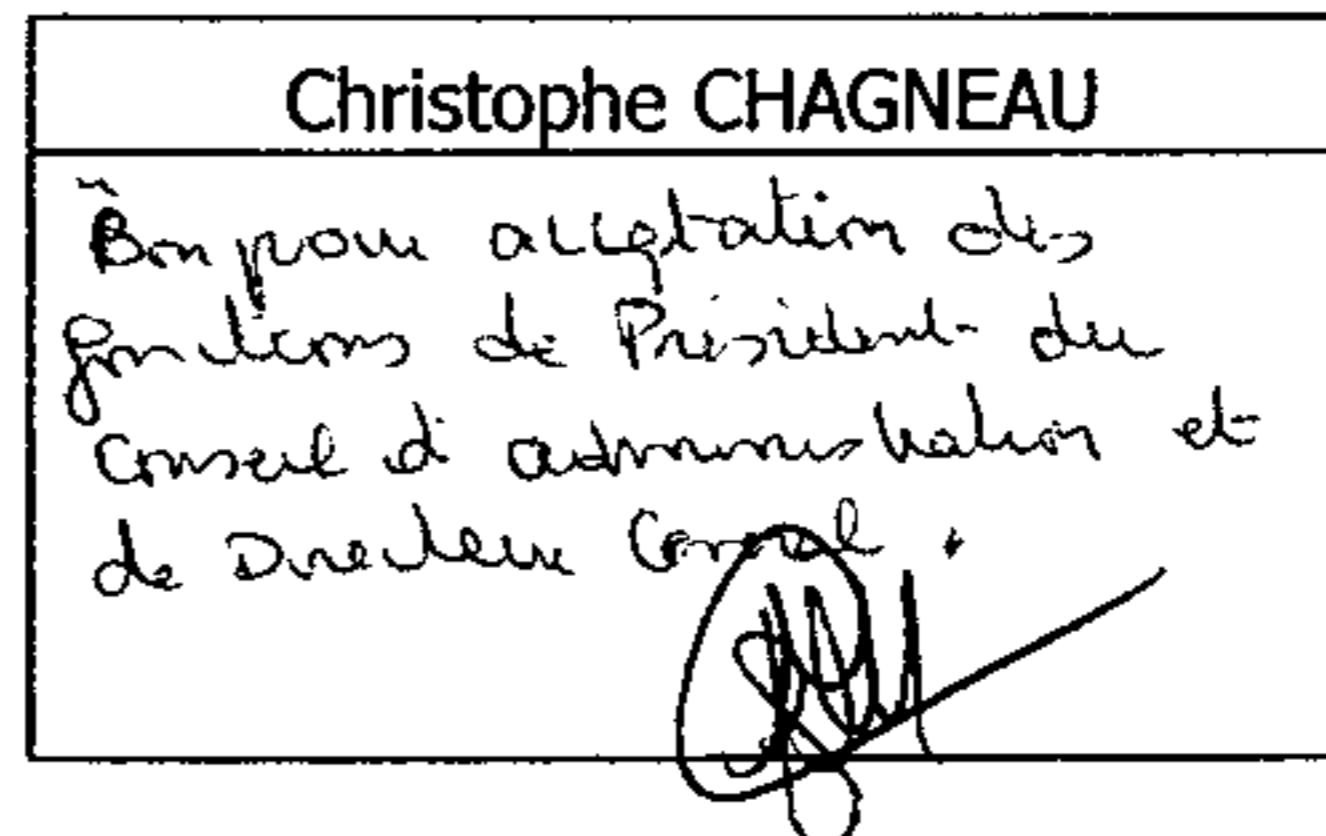 Christophe CHAGNEAU
"Bon pour acceptation des
fonctions de Président du
Conseil d'administration et
de Directeur Général.